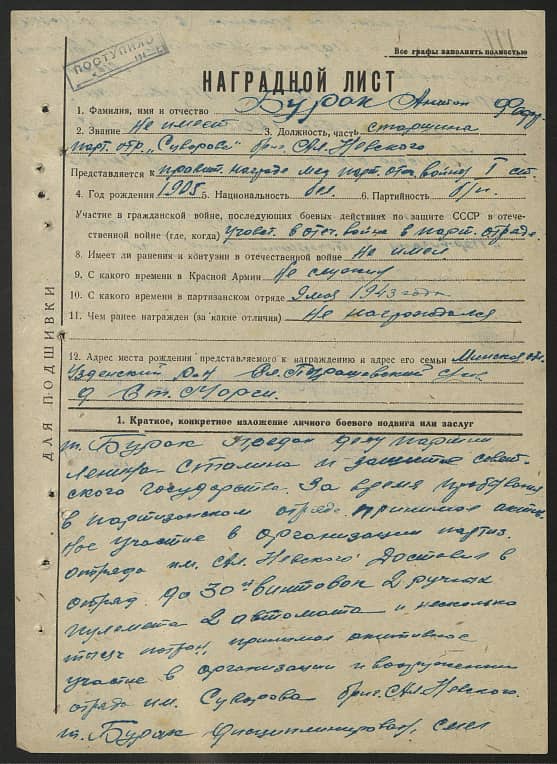 ПОСТУПИЛО
Все графы заполнять полностью
НАГРАДНОЙ ЛИСТ
1. Фамилия, имя и отчество Бурак Антон Фад.
2. Звание Не имеет 3. Должность, часть старшина
парт. отр. „Суворова" бриг. Ал. Невского
Представляется к правит. награде мед. парт. отеч. войны I ст.
4. Год рождения 1905 5. Национальность бел. 6. Партийность б/п.
Участие в гражданской войне, последующих боевых действиях по защите СССР в отече-
ственной войне (где, когда) Участ. в отеч. войне в парт. отряде.
8. Имеет ли ранения и контузии в отечественной войне Не имел
9. С какого времени в Красной Армии Не служил
10. С какого времени в партизанском отряде 9 мая 1943 года
11. Чем ранее награжден (за какие отличия) Не награждался
12. Адрес места рождения представляемого к награждению и адрес его семьи Минская обл.
Узденский р-н
д.
ДЛЯ ПОДШИВКИ
1. Краткое, конкретное изложение личного боевого подвига или заслуг
т. Бурак предан делу партии
Ленина-Сталина и защите совет-
ского государства. За время пребывания
в партизанском отряде принимал актив-
ное участие в организации партиз.
отряда им. Ал. Невского. Доставил в
отряд до 30 винтовок 2 ручных
пулемета 2 автомата и несколько
тысяч патрон, принимал активное
участие в организации и вооружении
отряда им. Суворова бриг. Ал. Невского.
т. Бурак дисциплинирован, смел